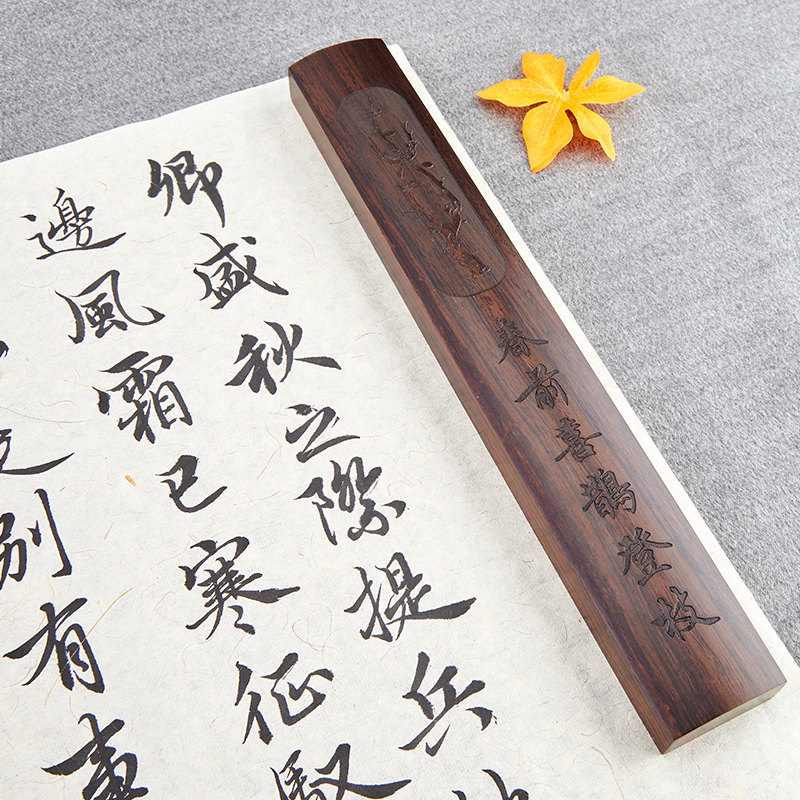 春前喜鵲登枝
卿盛秋之際提兵
邊風霜已寒征馭
别有事